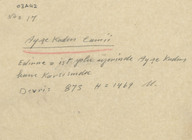 No: 17
Ayşe Kadın Camii
Edirne ist. yolu üzerinde Ayşe Kadın
hanı karşısında
Devri: 873 H = 1469 M.